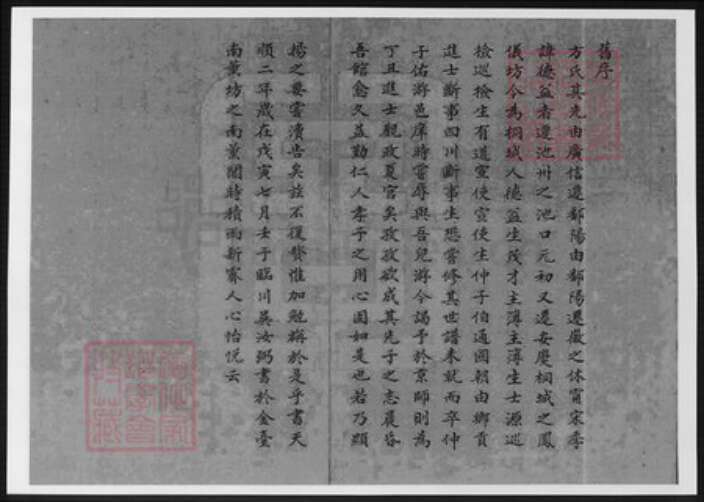 舊序
方氏其先由廣信遷鄱陽由鄱陽遷徽之休甯宋季
諱德益者遷池州之池口元初又遷安慶桐城之鳳
儀坊今為桐城人德益生茂才主簿主簿生士源巡
檢巡檢生有道宣使宣使生仲子伯通國朝由鄉貢
進士斷事四川斷事生懋嘗修其世譜未就而卒仲
子佑游邑庠時嘗辱與吾兒游今謁予於京師則為
丁丑進士觀政夏官矣孜孜欲成其先子之志晨昏
吾館愈久益勤仁人孝子之用心固如是也若乃顯
揚之要嘗瀆告矣茲不復贅惟加勉稱於是乎書天
順二年歲在戊寅七月壬子臨川吳汝弼書於金臺
南薰坊之南薰閣時積雨新霽人心怡悅云